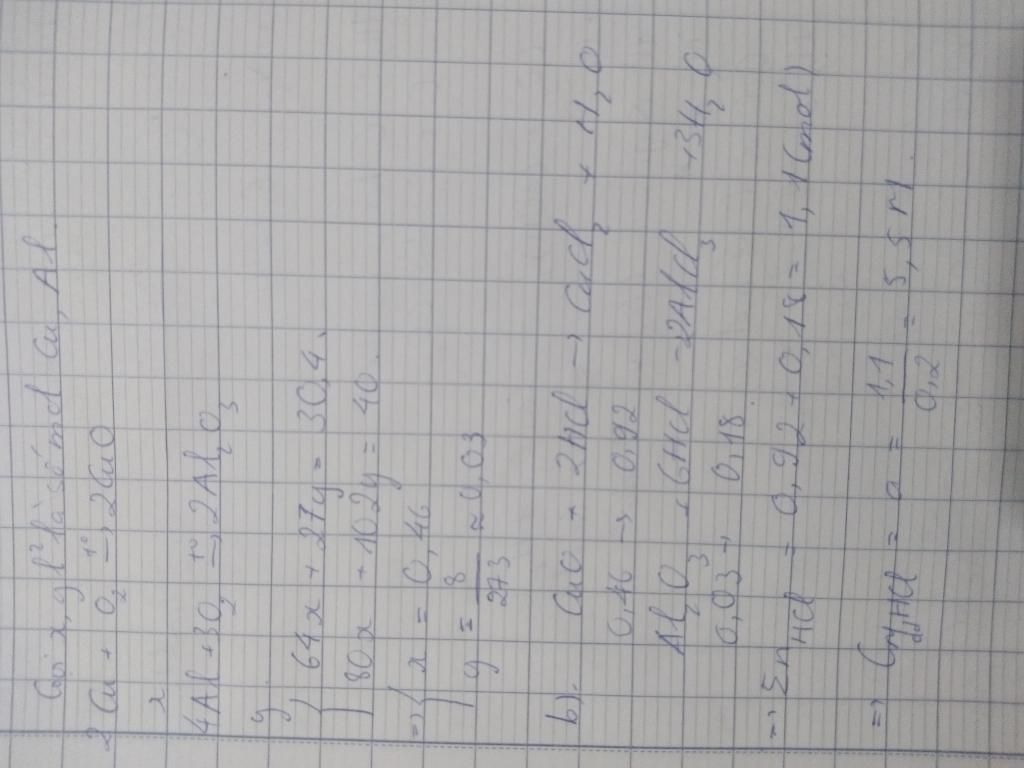 Gọi x, y l² là số mol Cu, Al.
2Cu + O₂ →(t°) 2CuO
x
4Al + 3O₂ →(t°) 2Al₂O₃
y
{ 64x + 27y = 30,4
{ 80x + 102y = 40
=> { x = 0,46
{ y = 8/273 ≈ 0,03
b). CuO + 2HCl → CuCl₂ + H₂O
0,46 → 0,92
Al₂O₃ + 6HCl → 2AlCl₃ + 3H₂O
0,03 → 0,18
=> Σn HCl = 0,92 + 0,18 = 1,1 (mol)
=> HCl = a = 1,1/0,2 = 5,5M